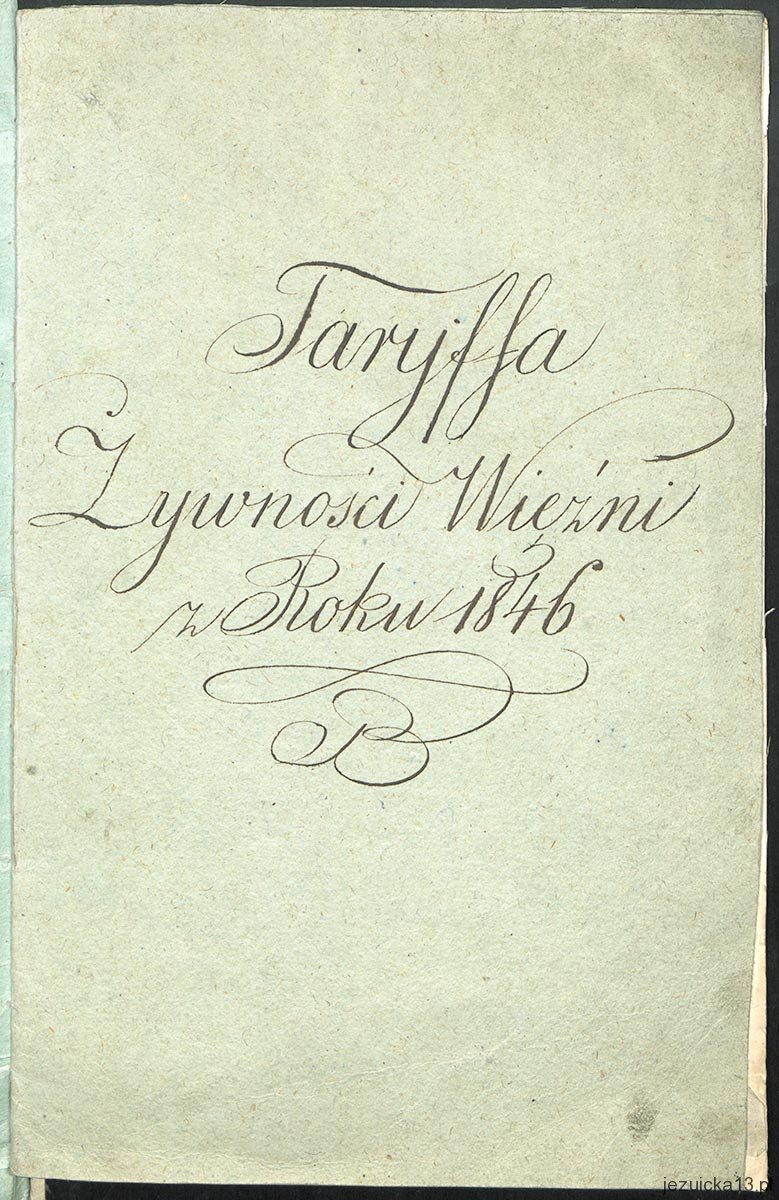 Taryffa
Żywności Więźni
z Roku 1846
B
jezuicka13.p